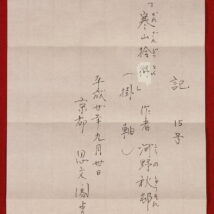 記
15号
寒山拾得 作者 河野秋邨
(掛軸)
平成廿年九月廿日
京都 思文閣